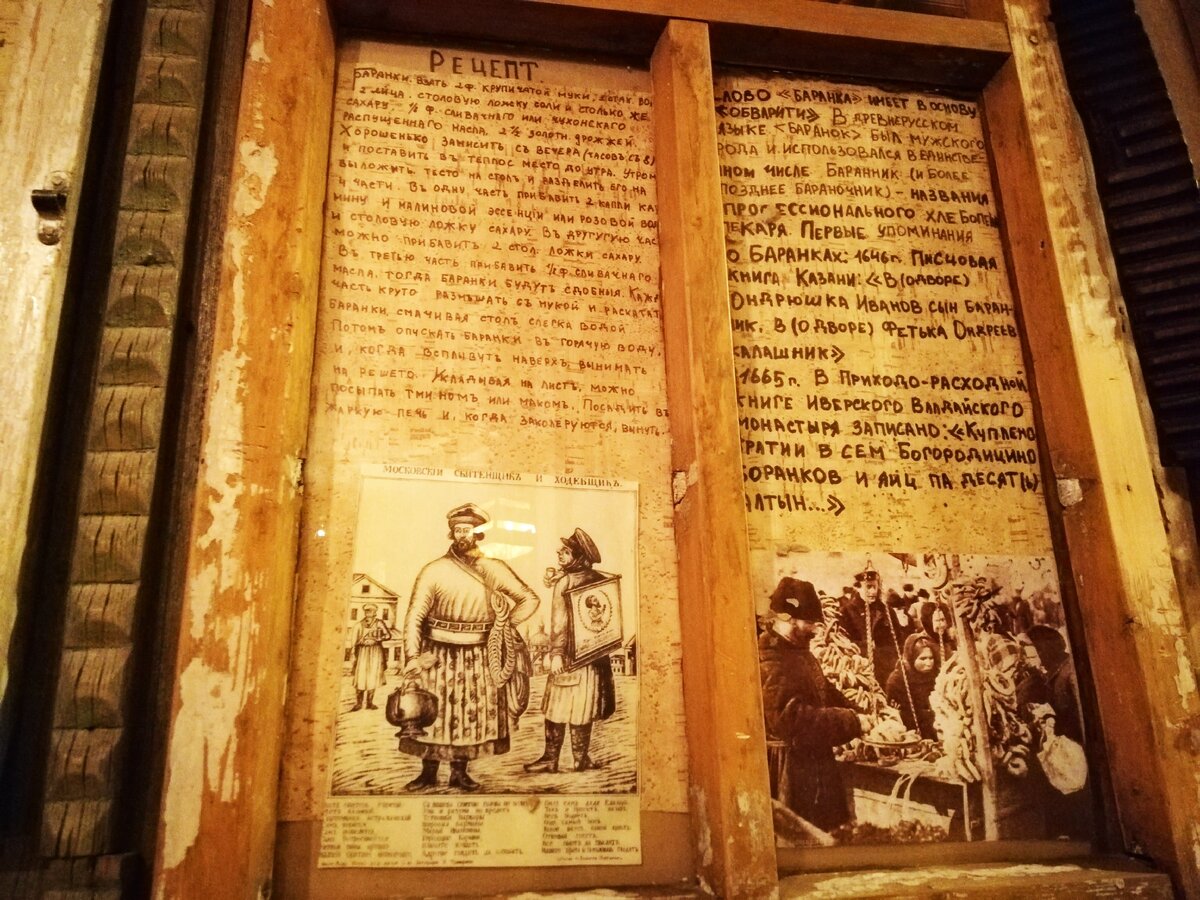 РЕЦЕПТ.
БАРАНКИ. ВЗЯТЬ 2 Ф. КРУПИЧАТОЙ МУКИ, 2 СТАК. ВО
2 ЯЙЦА, СТОЛОВУЮ ЛОЖКУ СОЛИ И СТОЛЬКО ЖЕ
САХАРУ. ⅛ Ф. СЛИВАЧНАГО ИЛИ ЧУХОНСКАГО
РАСПУЩЕННАГО МАСЛА, 2½ ЗОЛОТН. ДРОЖЖЕЙ.
ХОРОШЕНЬКО ЗАМИСИТЬ СЪ ВЕЧЕРА (ЧАСОВЪ СЪ 8)
И ПОСТАВИТЬ ВЪ ТЕПЛОЕ МЕСТО ДО УТРА. УТРОМ
ВЫЛОЖИТЬ ТЕСТО НА СТОЛЪ И РАЗДЕЛИТЬ ЕГО НА
4 ЧАСТИ. ВЪ ОДНУ ЧАСТЬ ПРИБАВИТЬ 2 КАПЛИ КАР
МИНУ И МАЛИНОВОЙ ЭССЕНЦІИ ИЛИ РОЗОВОЙ ВОД
И СТОЛОВУЮ ЛОЖКУ САХАРУ. ВЪ ДРУГУГУЮ ЧАС
МОЖНО ПРИБАВИТЬ 2 СТОЛ. ЛОЖКИ САХАРУ.
ВЪ ТРЕТЬЮ ЧАСТЬ ПРИБАВИТЬ ½ Ф. СЛИВАЧНАГО
МАСЛА, ТОГДА БАРАНКИ БУДУТЪ СДОБНЫЯ. КАЖД
ЧАСТЬ КРУТО РАЗМЕШАТЬ СЪ МУКОЙ И РАСКАТАТ
БАРАНКИ, СМАЧИВАЯ СТОЛЪ СЛЕГКА ВОДОЙ
ПОТОМЪ ОПУСКАТЬ БАРАНКИ ВЪ ГОРЯЧУЮ ВОДУ,
И, КОГДА ВСПЛЫВУТЬ НАВЕРХЪ, ВЫНИМАТЬ
НА РЕШЕТО. УКЛАДЫВАЯ НА ЛИСТЪ, МОЖНО
ПОСЫПАТЬ ТМИНОМЪ ИЛИ МАКОМЪ. ПОСАДИТЬ ВЪ
ЖАРКУЮ ПЕЧЬ И, КОГДА ЗАКОЛЕРУЮТСЯ, ВЫНУТЬ.
МОСКОВСКІЙ СБИТЕНЩИКЪ И ХОДЕБЩИКЪ.
ЛОВО «БАРАНКА» ИМЕЕТ В ОСНОВУ
«ОБВАРИТИ» В ДРЕВНЕРУССКОМ
ЯЗЫКЕ «БАРАНОК» БЫЛ МУЖСКОГО
РОДА И ИСПОЛЬЗОВАЛСЯ В ЕДИНСТВЕ-
НОМ ЧИСЛЕ БАРАННИК (И БОЛЕЕ
ПОЗДНЕЕ БАРАНОЧНИК) – НАЗВАНИЯ
ПРОФЕССИОНАЛЬНОГО ХЛЕБОПЁ
ПЕКАРЯ. ПЕРВЫЕ УПОМИНАНИЯ
О БАРАНКАХ: 1646 г. ПИСЦОВАЯ
КНИГА КАЗАНИ: «В (ОДВОРЕ)
ОНДРЮШКА ИВАНОВ СЫН БАРАН-
НИК, В (О ДВОРЕ) ФЕТЬКА ОНДРЕЕВ
КАЛАШНИК»
1665 г. В ПРИХОДО-РАСХОДНОЙ
КНИГЕ ИВЕРСКОГО ВАЛДАЙСКОГО
МОНАСТЫРЯ ЗАПИСАНО: «КУПЛЕНО
БРАТИИ В СЕМ БОГОРОДИЦИНО
БОРАНКОВ И ЯИЦ ПА ДЕСАТ(Ь)
АЛТЫН...»